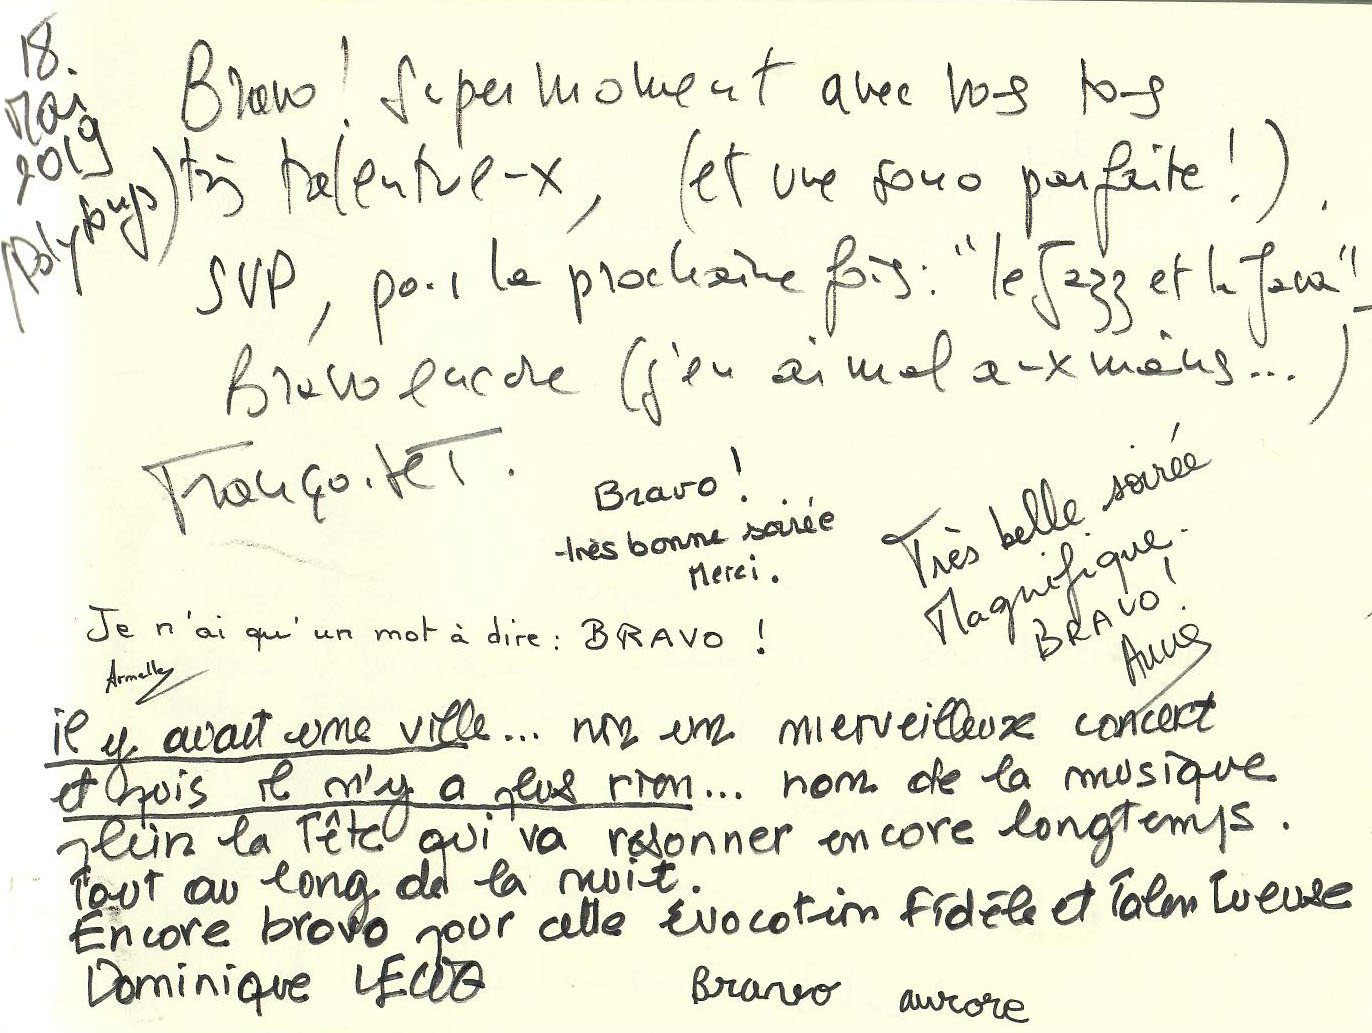 18.
Mai
2019
(Polysongs)
Bravo! Super moment avec vos
très talentueux, (et une sono parfaite!).
SVP, pour la prochaine fois: "le Jazz et la Java"
Bravo encore (j'en ai mal aux mains...)
Bravo!
très bonne soirée
Merci.
Très belle soirée
Magnifique.
BRAVO!
Anne
Je n'ai qu'un mot à dire: BRAVO !
Armelle
il y avait une ville... un merveilleux concert
et puis il n'y a plus rien... non de la musique
plein la tête qui va résonner encore longtemps.
Tout au long de la nuit.
Encore bravo pour cette évocation fidèle et talentueuse
Dominique
Bravo aurore